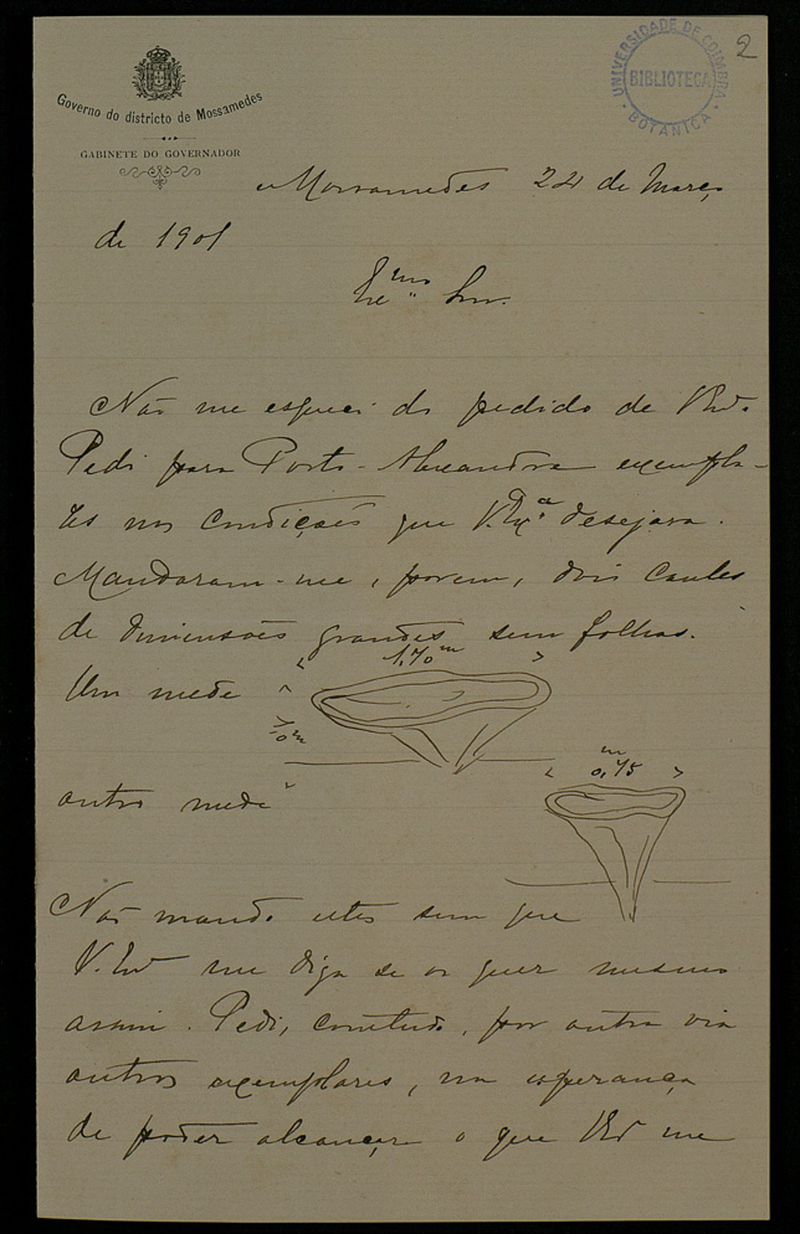 2
UNIVERSIDADE DE COIMBRA
BIBLIOTECA
BOTANICA
Governo do districto de Mossamedes
GABINETE DO GOVERNADOR
Mossamedes 24 de Março
de 1901
Exmo Snr.
Não me esqueci do pedido de VEx.
Pedi para Porto-Alexandre exempla-
res nas condições que V.Exa desejava.
Mandaram-me, porem, dois caules
de dimensões grandes sem folhas.
1,70m
Um mede
m
0,75
outro mede
Não mando estes sem que
V.Ex me diga se os quer mesmo
assim. Pedi, comtudo, por outra via
outros exemplares, na esperança
de poder alcançar o que VEx me